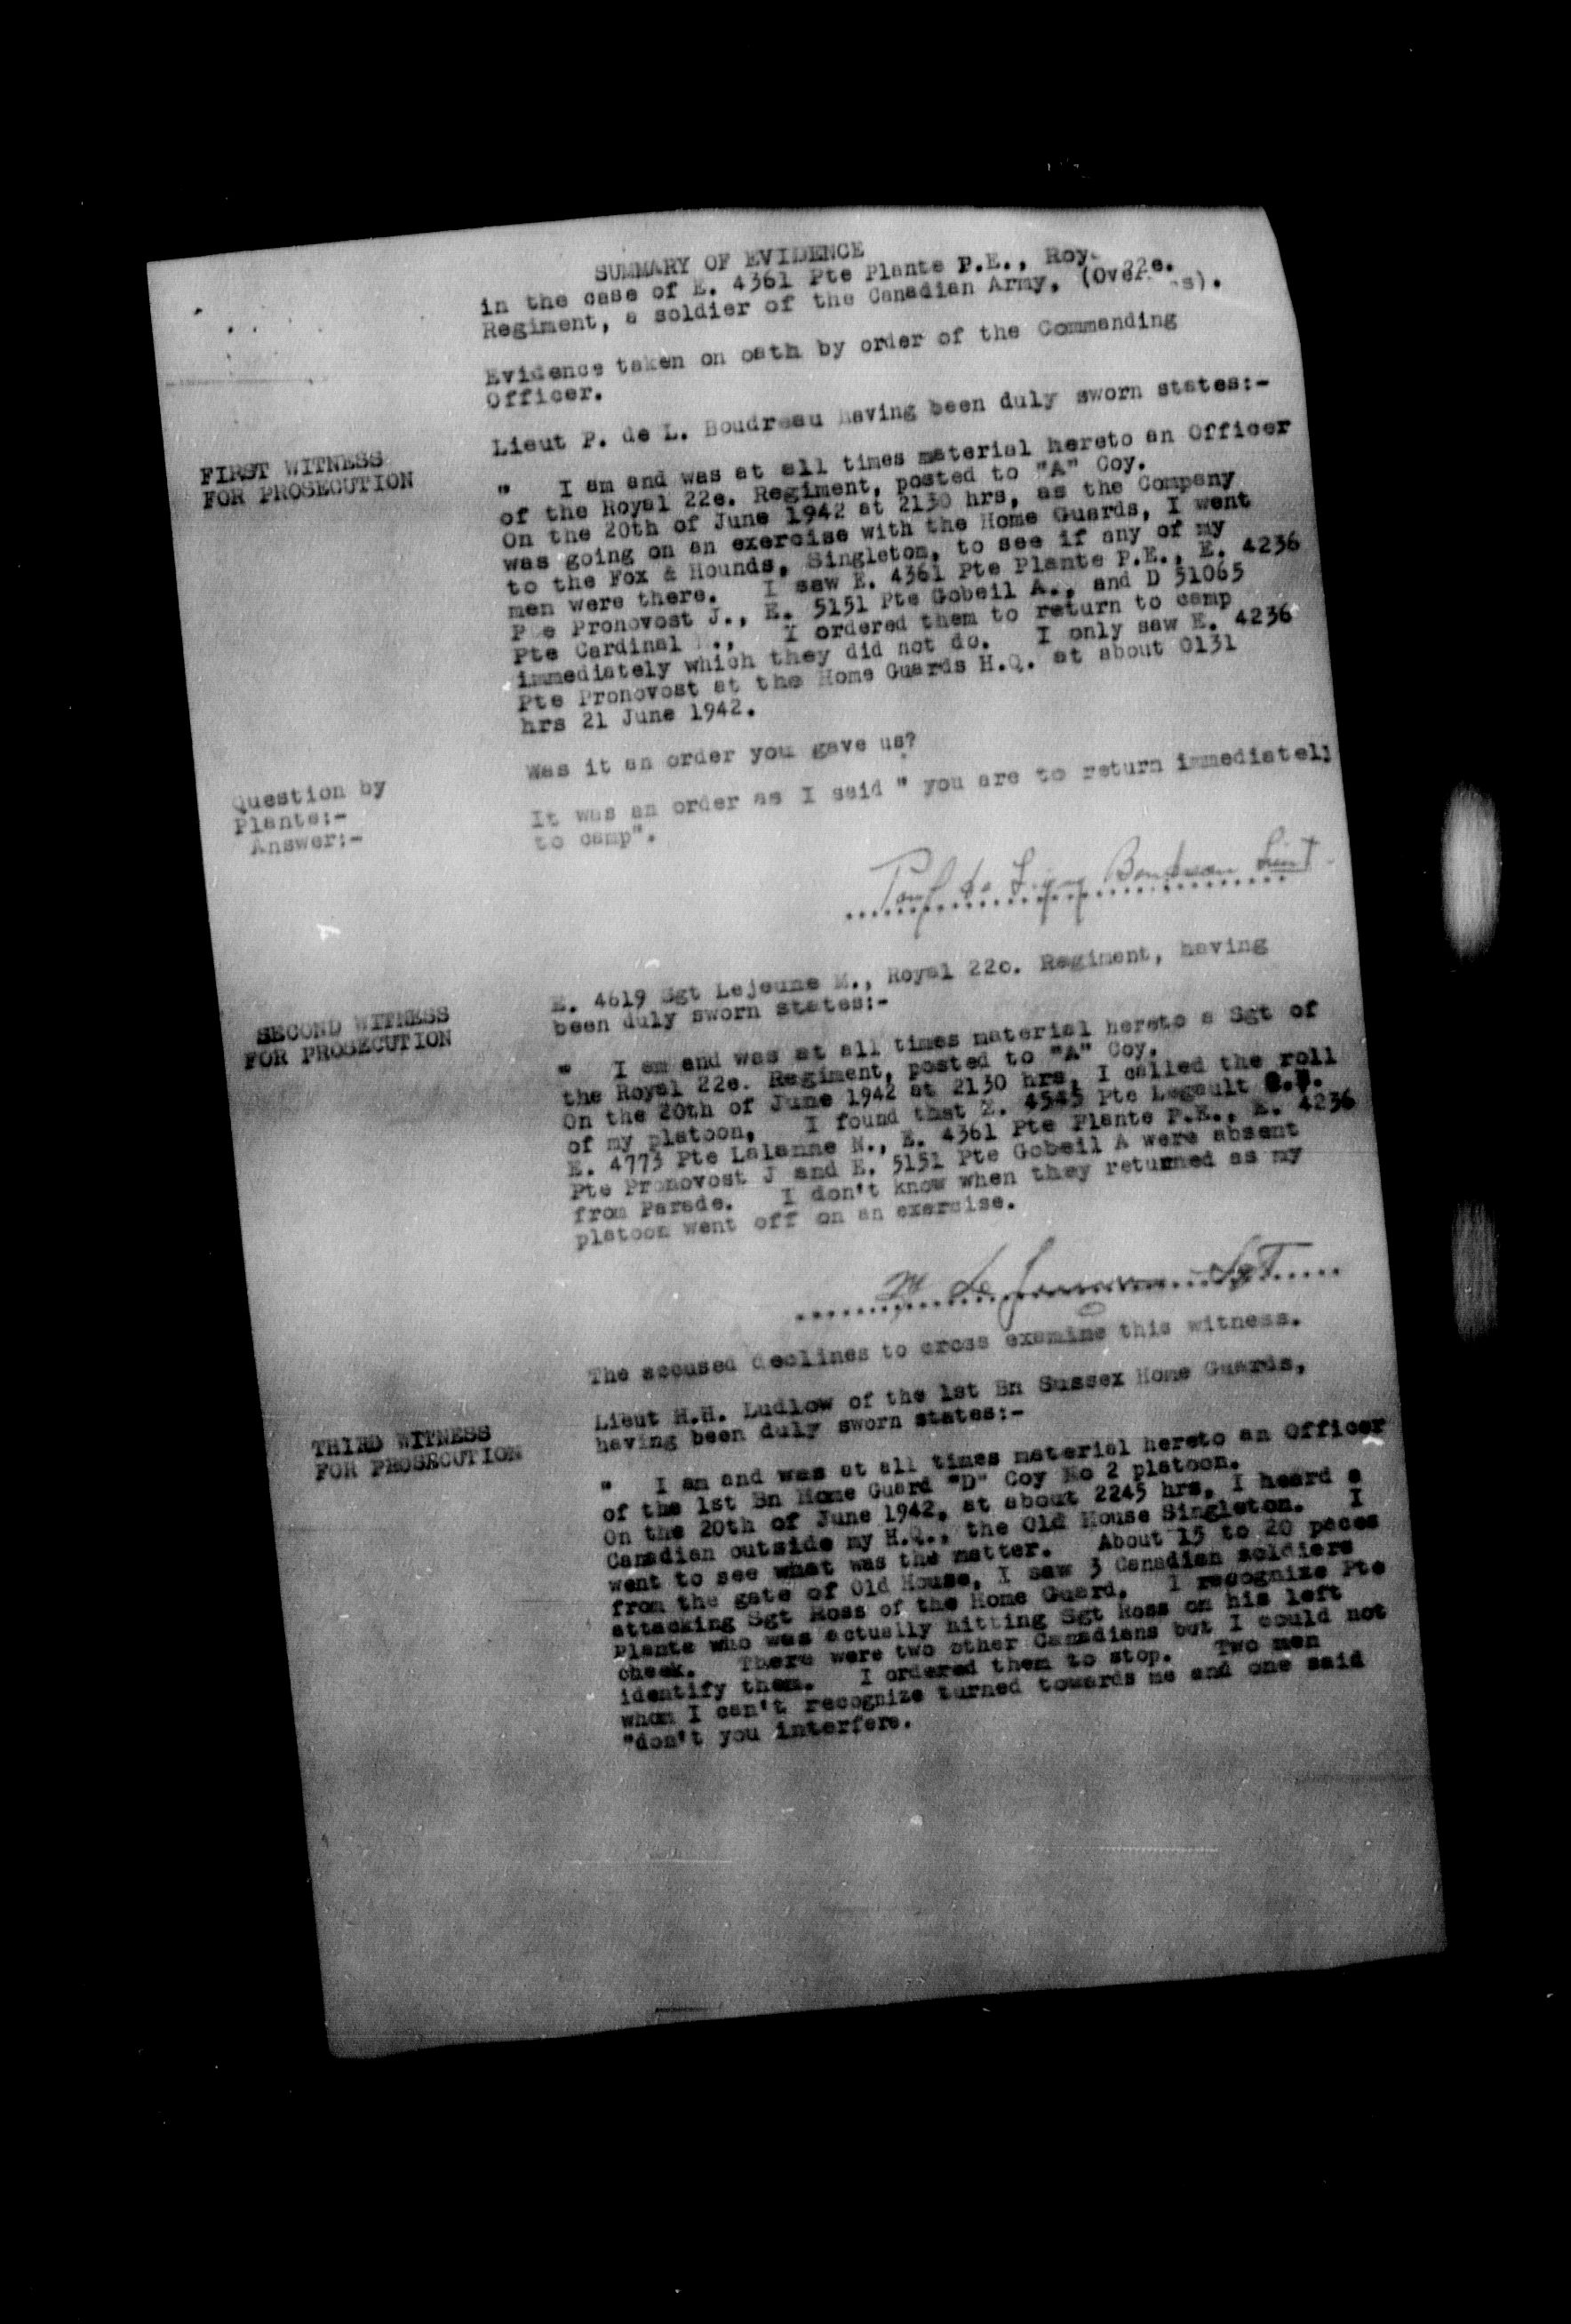 SUMMARY OF EVIDENCE
in the case of E. 4361 Pte Plante P.E., Roy 22e.
Regiment, a soldier of the Canadian Army, (Over s).
Evidence taken on oath by order of the Commanding
Officer.
Lieut P. de L. Boudreau having been duly sworn states:-
FIRST WITNESS
FOR PROSECUTION
" I am and was at all times material hereto an Officer
of the Royal 22e. Regiment, posted to "A" Coy.
On the 20th of June 1942 at 2130 hrs, as the Company
was going on an exercise with the Home Guards, I went
to the Fox & Hounds, Singleton, to see if any of my
men were there. I saw E. 4361 Pte Plante P.E., E. 4236
Pte Pronovost J., E. 5151 Pte Gobeil A., and D 51065
Pte Cardinal ., I ordered them to return to camp
immediately which they did not do. I only saw E. 4236
Pte Pronovost at the Home Guards H.Q. at about 0131
hrs 21 June 1942.
Question by
Plante:-
Was it an order you gave us?
Answer:-
It was an order as I said " you are to return immediately
to camp".
Lieut
SECOND WITNESS
FOR PROSECUTION
E. 4619 Sgt Lejeune M., Royal 22e. Regiment, having
been duly sworn states:-
" I am and was at all times material hereto a Sgt of
the Royal 22e. Regiment, posted to "A" Coy.
On the 20th of June 1942 at 2130 hrs, I called the roll
of my platoon, I found that E. 4545 Pte Legault
E. 4773 Pte Lalanne N., E. 4361 Pte Plante P.E., E. 4236
Pte Pronovost J and E. 5151 Pte Gobeil A were absent
from Parade. I don't know when they returned as my
platoon went off on an exercise.
M Lejeune Sgt
The accused declines to cross examine this witness.
THIRD WITNESS
FOR PROSECUTION
Lieut H.H. Ludlow of the 1st Bn Sussex Home Guards,
having been duly sworn states:-
" I am and was at all times material hereto an Officer
of the 1st Bn Home Guard "D" Coy No 2 platoon.
On the 20th of June 1942, at about 2245 hrs, I heard a
Canadian outside my H.Q., the Old House Singleton. I
went to see what was the matter. About 15 to 20 paces
from the gate of Old House, I saw 3 Canadian soldiers
attacking Sgt Ross of the Home Guard. I recognize Pte
Plante who was actually hitting Sgt Ross on his left
cheek. There were two other Canadians but I could not
identify them. I ordered them to stop. Two men
whom I can't recognize turned towards me and one said
"don't you interfere.